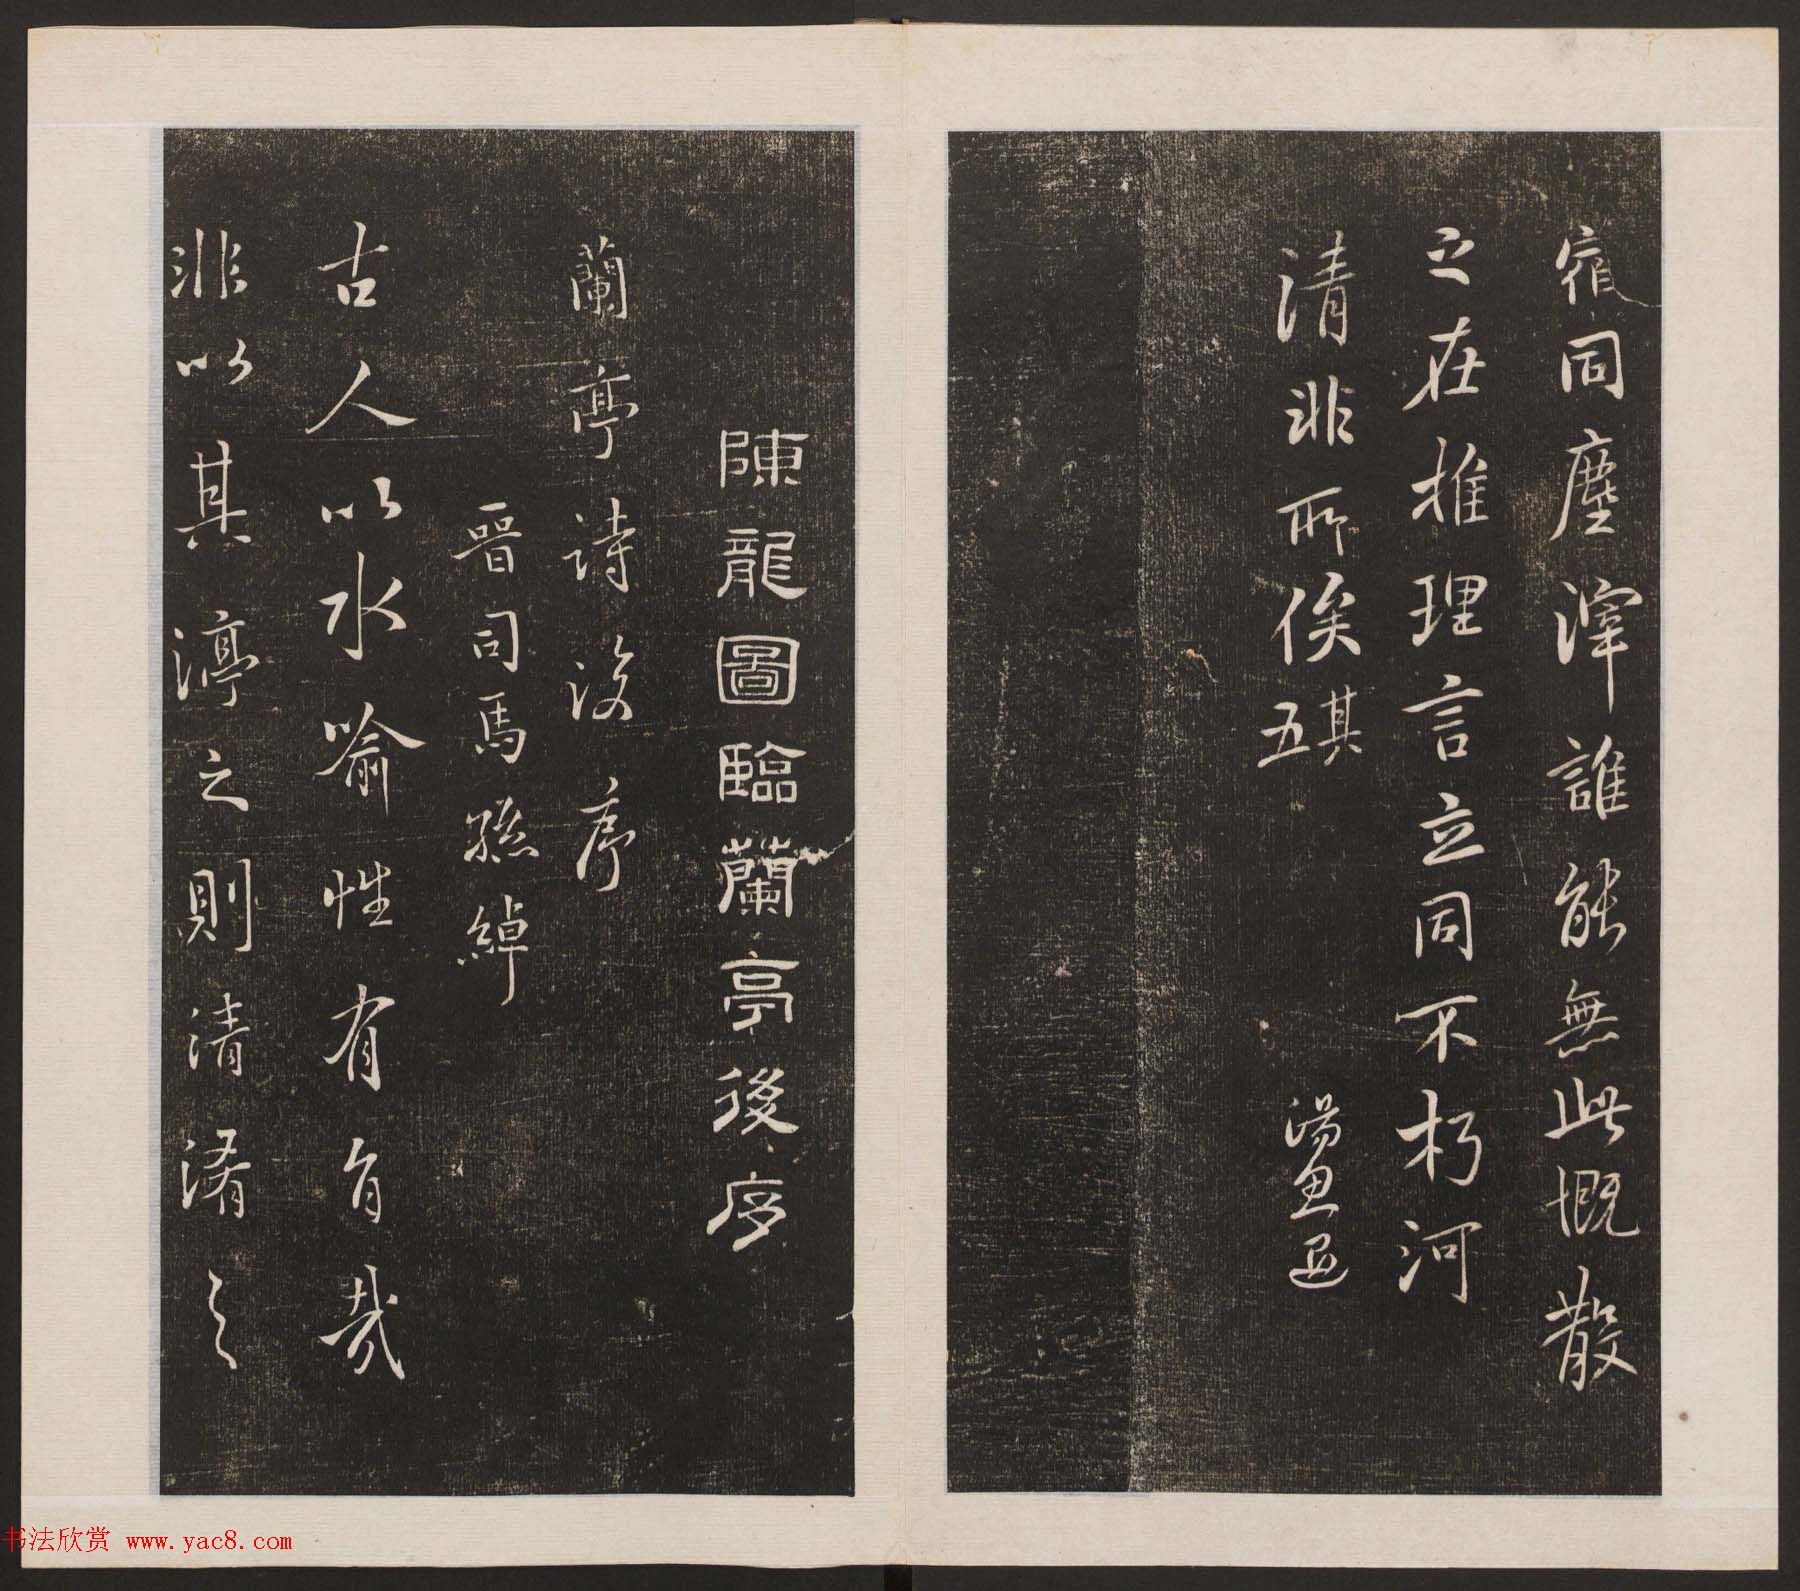 宿同塵滓誰能無此慨散
之在推理言立同不朽河
清非所俟其五
湯思退
陳龍圖臨蘭亭後序
蘭亭詩後序
晉司馬孫綽
古人以水喻性有旨哉
非以其渟之則清淆之
书法欣赏 www.yac8.com